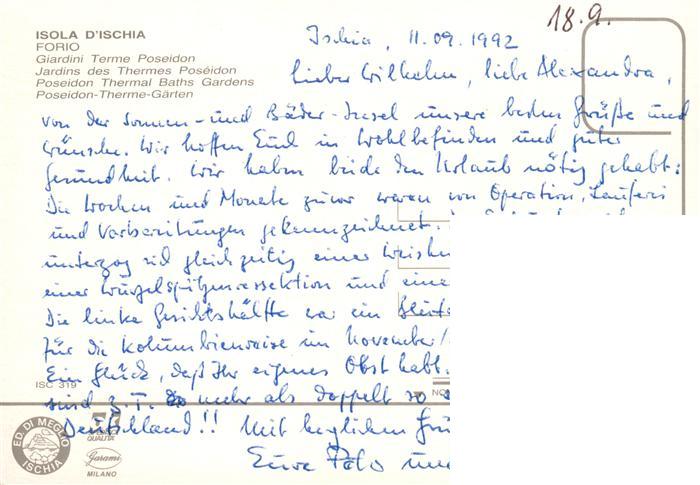 18.9.
ISOLA D'ISCHIA
FORIO
Giardini Terme Poseidon
Jardins des Thermes Poséidon
Poseidon Thermal Baths Gardens
Poseidon-Therme-Gärten
Ischia, 11.09.1992
Lieber Wilhelm, liebe Alexandra,
von der Sonnen- und Bäder-Insel unsere besten Grüße und
Wünsche. Wir hoffen Euch in Wohlbefinden und guter
Gesundheit. Wir haben beide den Urlaub nötig gehabt:
Die Wochen und Monate zuvor waren von Operation, Lauferei
und Vorbereitungen gekennzeichnet.
unterzog sich gleichzeitig einer
einer Wurzelspitzenressektion und eine
Die linke Gesichtshälfte war ein
für die Kolumbienreise im November/
Ein Glück, daß Ihr eigenes Obst habt.
ISC 319
sind z.T. mehr als doppelt so
Deutschland!! Mit herzlichen Grü
Eure Polo und
ED. DI MEGLIO
ISCHIA
QUALITÀ
Garami
MILANO